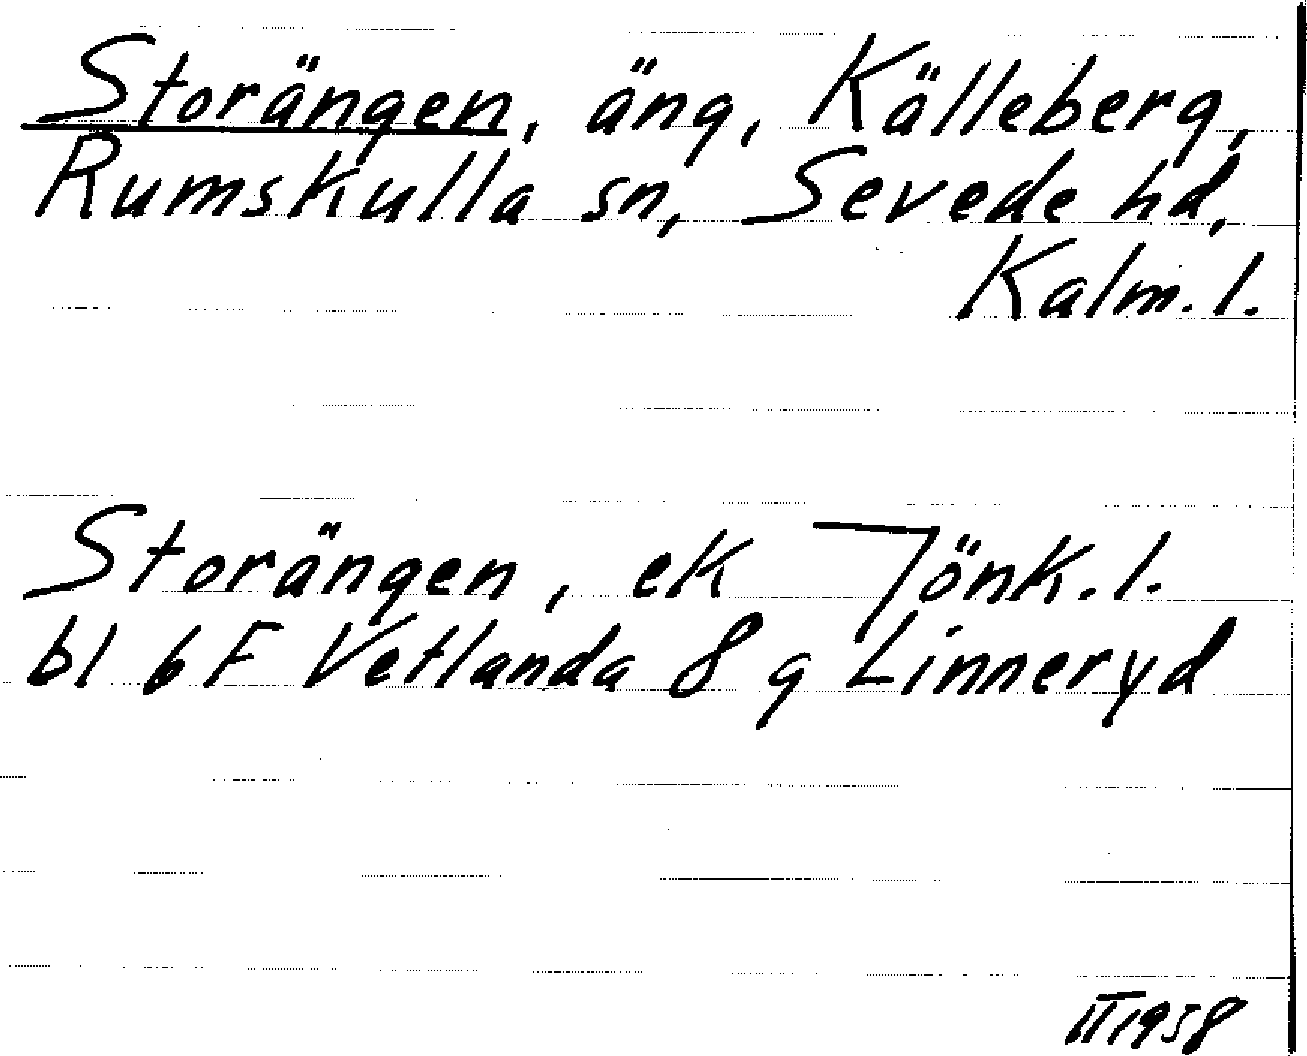 Storängen, äng, Källeberg,
Rumskulla sn, Sevede hd,
Kalm. l.
Storängen, ek Jönk. l.
bl 6 F Vetlanda 8 g Linneryd
II 1958